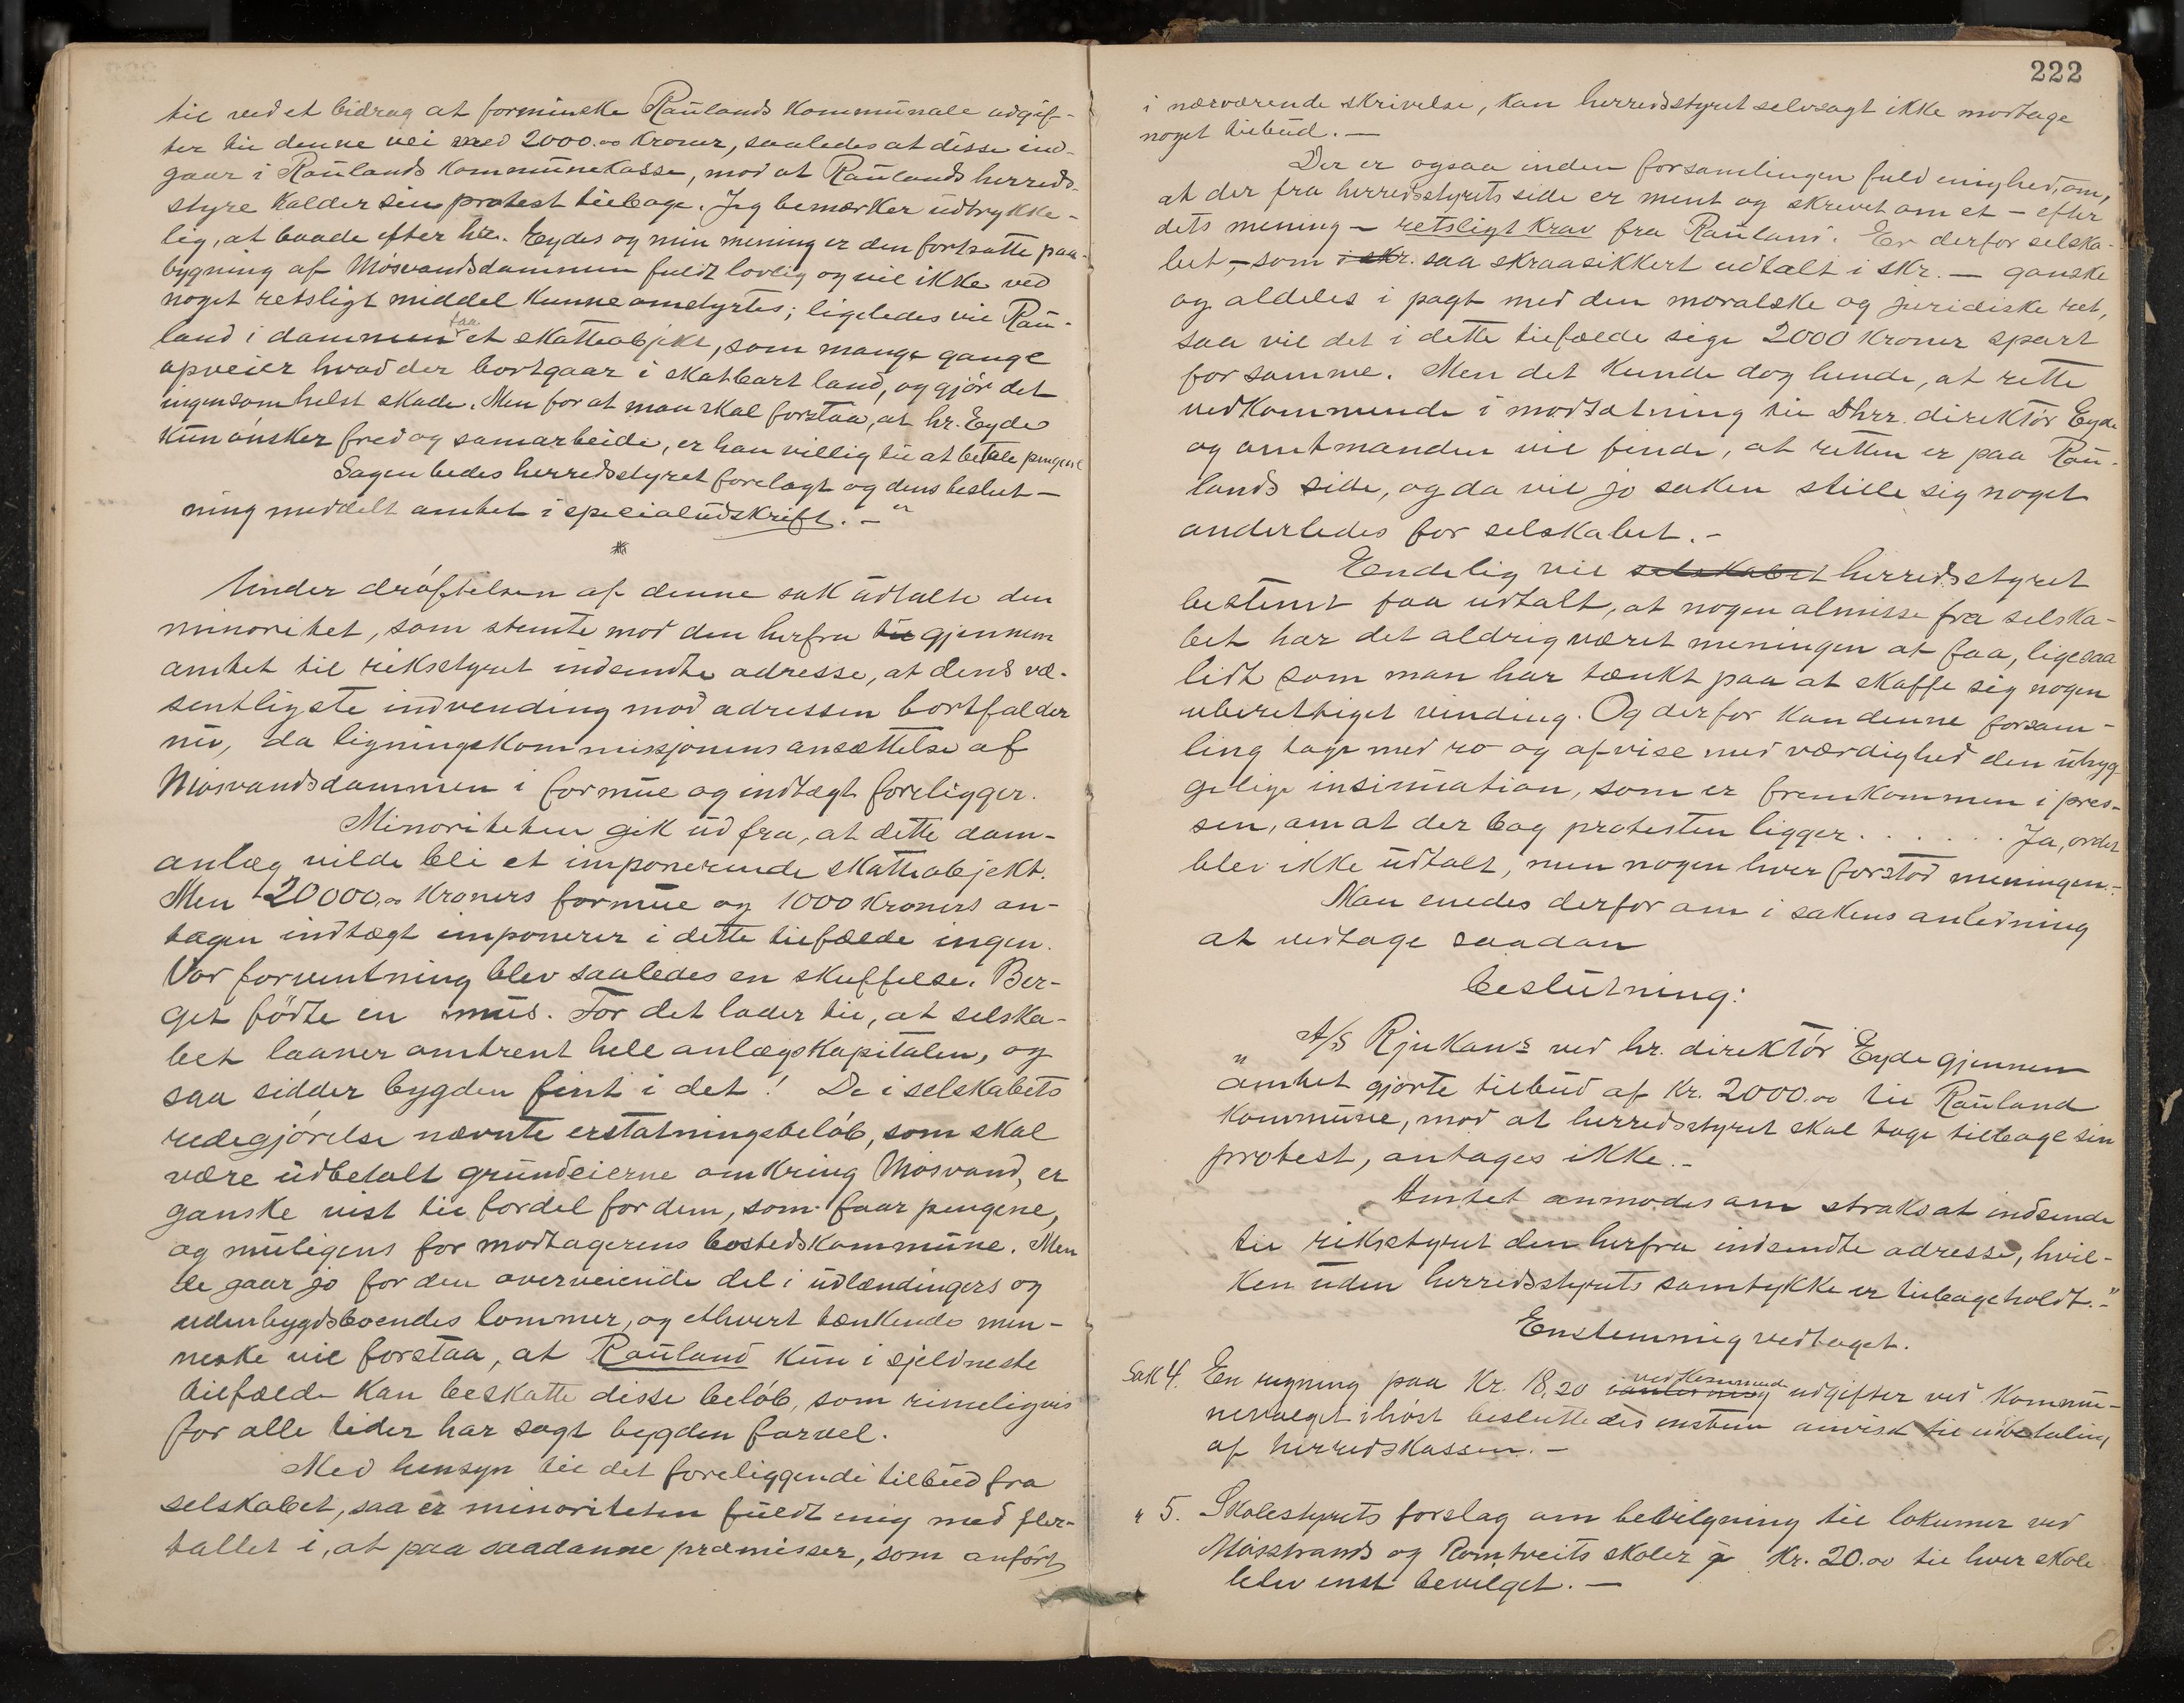 til ved et bidrag at forminske Raulands kommunale udgif-
ter til denne vei med 2000.00 kroner, saaledes at disse ind-
gaar i Raulands kommunekasse, mod at Raulands herreds-
styre kalder sin protest tilbage. Jeg bemærker udtrykke-
lig, at baade efter hr. Eydes og min mening er den fortsatte paa-
bygning af Mösvandsdammen fuldt lovlig og vil ikke ved
noget retsligt middel kunne omstyrtes; ligeledes vil Rau-
land i dammen faa et skatteobjekt, som mange gange
opveier hvad der bortgaar i skatbart land, og gjör det
ingensomhelst skade. Men for at man skal forstaa, at hr. Eyde
kun önsker fred og samarbeide, er han villig til at betale pengene
Sagen bedes herredsstyret forelagt og dens beslut-
ning meddelt amtet i specialudskrift. - "
Under dröftelsen af denne sak udtalte den
minoritet, som stemte mod den herfra til gjennem
amtet til riksstyret indsendte adresse, at dens væ-
sentligste indvending mod adressen bortfalder
nu, da ligningskommissjonens ansættelse af
Mösvandsdammen i formue og indtægt foreligger.
Minoriteten gik ud fra, at dette dam-
anlæg vilde bli et imponerende skatteobjekt.
Men 20000.00 kroners formue og 1000 kroners an-
tagen indtægt imponerer i dette tilfælde ingen.
Vor forventning blev saaledes en skuffelse. Ber-
get födte en mus. For det lader til, at selska-
bet laaner omtrent hele anlægskapitalen, og
saa sidder bygden fint i det! De i selskabets
redegjörelse nævnte erstatningsbelöb, som skal
være udbetalt grundeierne omkring Mösvand, er
ganske vist til fordel for dem, som faar pengene,
og muligens for modtagerens bostedskommune. Men
de gaar jo for den overveiende del i udlændingers og
udenbygdsboendes lommer, og ethvert tænkende men-
neske vil forstaa, at Rauland kun i sjeldneste
tilfælde kan beskatte disse belöb, som rimeligvis
for alle tider har sagt bygden farvel.
Med hensyn til det foreliggende tilbud fra
selskabet, saa er minoriteten fuldt enig med fler-
tallet i, at paa saadanne præmisser, som anfört
222
i nærværende skrivelse, kan herredsstyret selvsagt ikke modtage
noget tilbud. -
Der er ogsaa inden forsamlingen fuld enighed, om,
at der fra herredsstyrets side er ment og skrevet om et - efter
dets mening - retsligt krav fra Rauland. Er derfor selska-
bet, - som i skr. saa skraasikkert udtalt i skr. - ganske
og aldeles i pagt med den moralske og juridiske ret,
saa vil det i dette tilfælde sige 2000 kroner spart
for samme. Men det kunde dog hende, at rette
vedkommende i modsætning til Dhrr. direktör Eyde
og amtmanden vil finde, at retten er paa Rau-
lands side, og da vil jo saken stille sig noget
anderledes for selskabet. -
Endelig vil selskabet herredsstyret
bestemt faa udtalt, at nogen almisse fra selska-
bet har det aldrig været meningen at faa, ligesaa
lidt som man har tænkt paa at skaffe sig nogen
uberettiget vinding. Og derfor kan denne forsam-
ling tage med ro og afvise med værdighed den uhyg-
gelige insinuation, som er fremkommen i pres-
sen, om at der bag protesten ligger . . . . . . . Ja, ordet
blev ikke udtalt, men nogen hver forstod meningen. -
Man enedes derfor om i sakens anledning
at vedtage saadan
beslutning:
" A/S Rjukans ved hr. direktör Eyde gjennem
amtet gjorte tilbud af kr. 2000.00 til Rauland
kommune, mod at herredsstyret skal tage tilbage sin
protest, antages ikke. -
Amtet anmodes om straks at indsende
til riksstyret den herfra indsendte adresse, hvil-
ken uden herredsstyrets samtykke er tilbageholdt. - "
Enstemmig vedtaget.
Sak 4. En regning paa kr. 18.20 ianledning vedkommend udgifter ved kommu-
nevalget i höst besluttedes enstem anvist til udbetaling
af herredskassen. -
" 5. Skolestyrets forslag om bevilgning til lokumer ved
Mösstrands og Romtveits skoler à kr. 20.00 til hver skole
blev enst bevilget. -